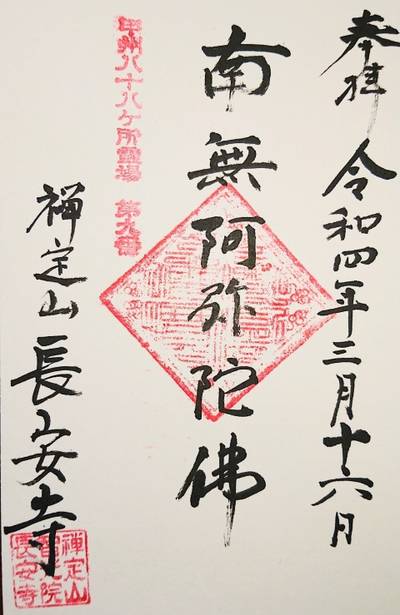 奉拝 令和四年三月十六日
南無阿弥陀佛
甲州八十八ケ所霊場 第九番
禅定山 長安寺
禅定山
長安寺